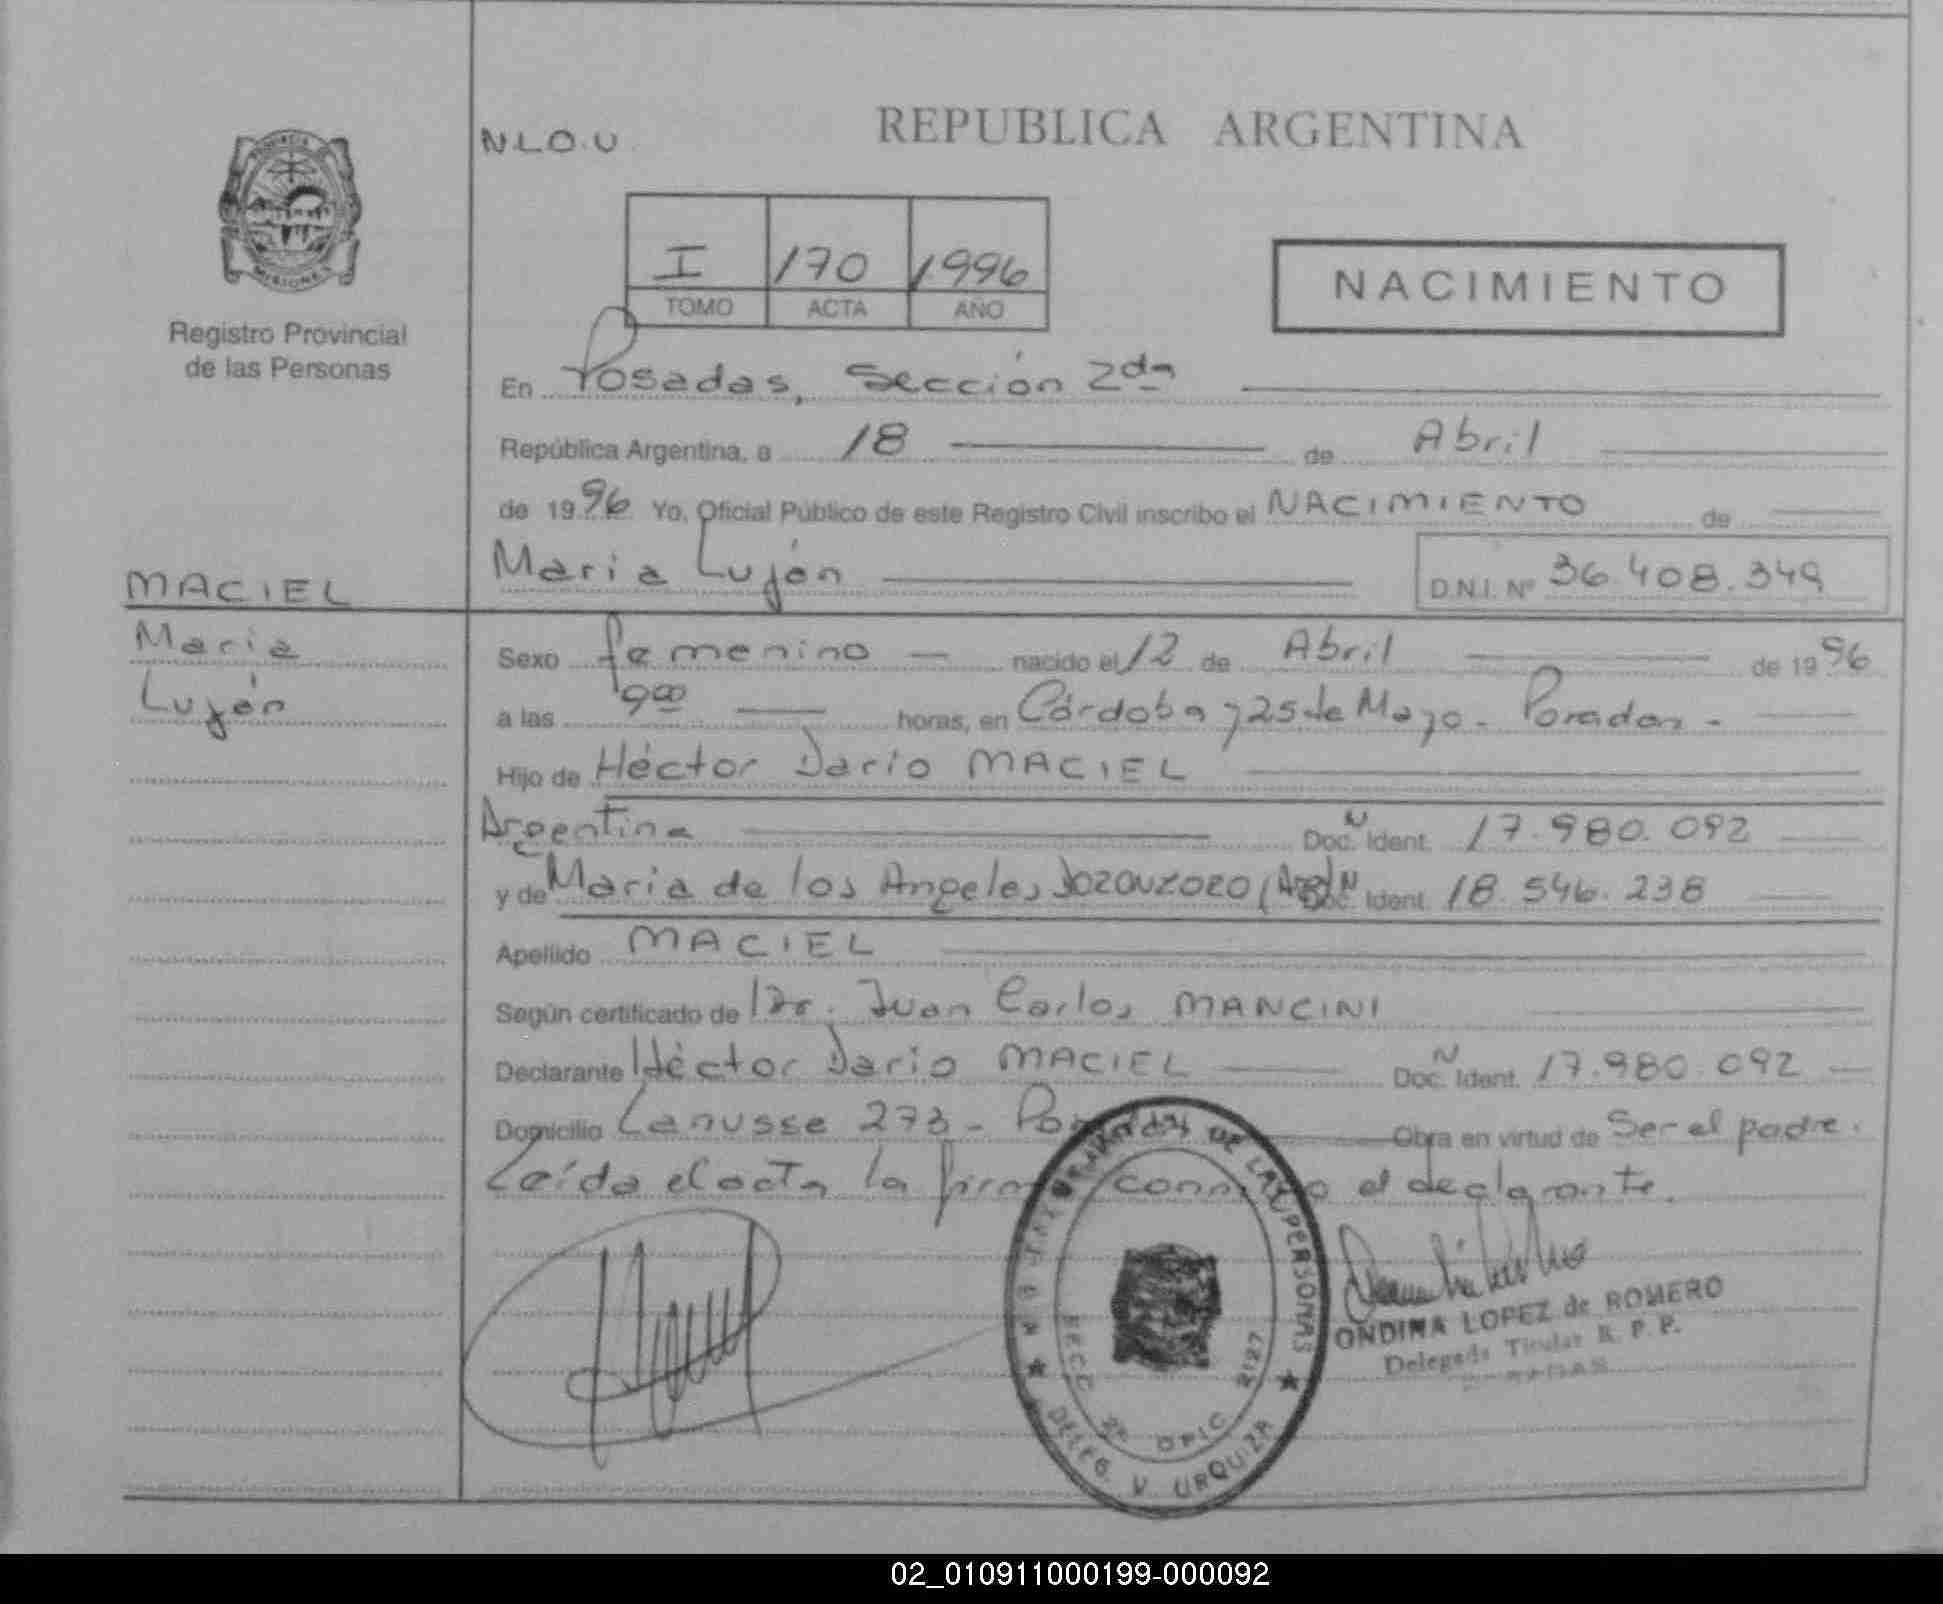 REPUBLICA ARGENTINA
N.L.O.U
I 170 1996
TOMO ACTA AÑO
NACIMIENTO
Registro Provincial
de las Personas
En Posadas, Sección 2da
República Argentina, a 18 de Abril
de 1996 Yo, Oficial Público de este Registro Civil inscribo el NACIMIENTO de
Maria Luján D.N.I. Nº 36.408.349
MACIEL
Maria
Luján
Sexo femenino nacido el 12 de Abril de 1996
a las 9 00 horas, en Córdoba y 25 de Mayo - Posadas -
Hijo de Héctor Dario MACIEL
Argentina Doc. N Ident. 17.980.092
y de Maria de los Angeles (Arg) Doc. N Ident. 18.546.238
Apellido MACIEL
Según certificado de Dr. Juan Carlos MANCINI
Declarante Héctor Dario MACIEL Doc. N Ident. 17.980.092
Domicilio Lanusse 273 - Obra en virtud de Ser el padre.
Leída el acta la firma conmigo el declarante.
DE LAS PERSONAS
SECC 2ª OFIC 2127
DELEG. V. URQUIZA
ONDINA LOPEZ de ROMERO
Delegada Titular R. P. P.
02_010911000199-000092